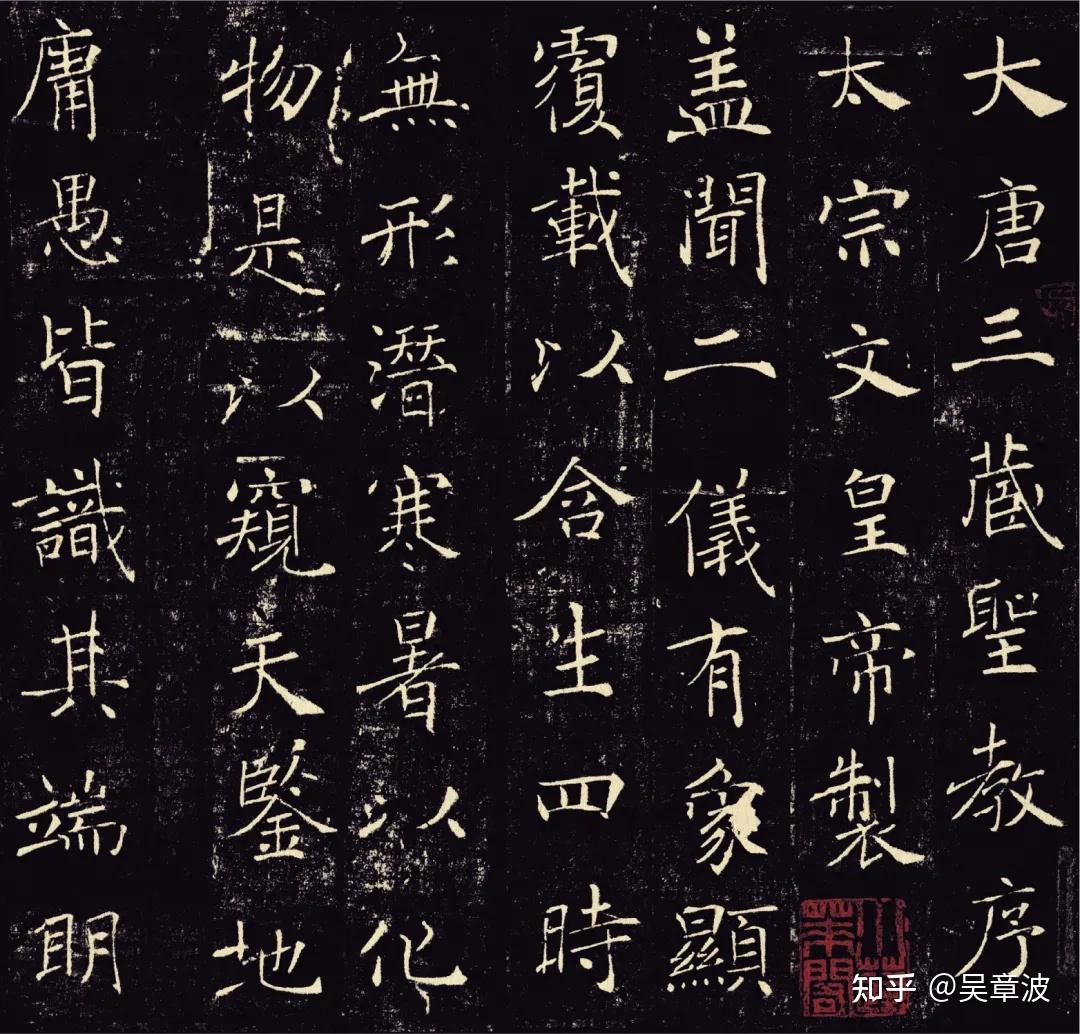 大唐三藏聖教序
太宗文皇帝製
盖聞二儀有象顯
覆載以含生四時
無形潛寒暑以化
物是以窺天鑒地
庸愚皆識其端明
知乎 @吴章波